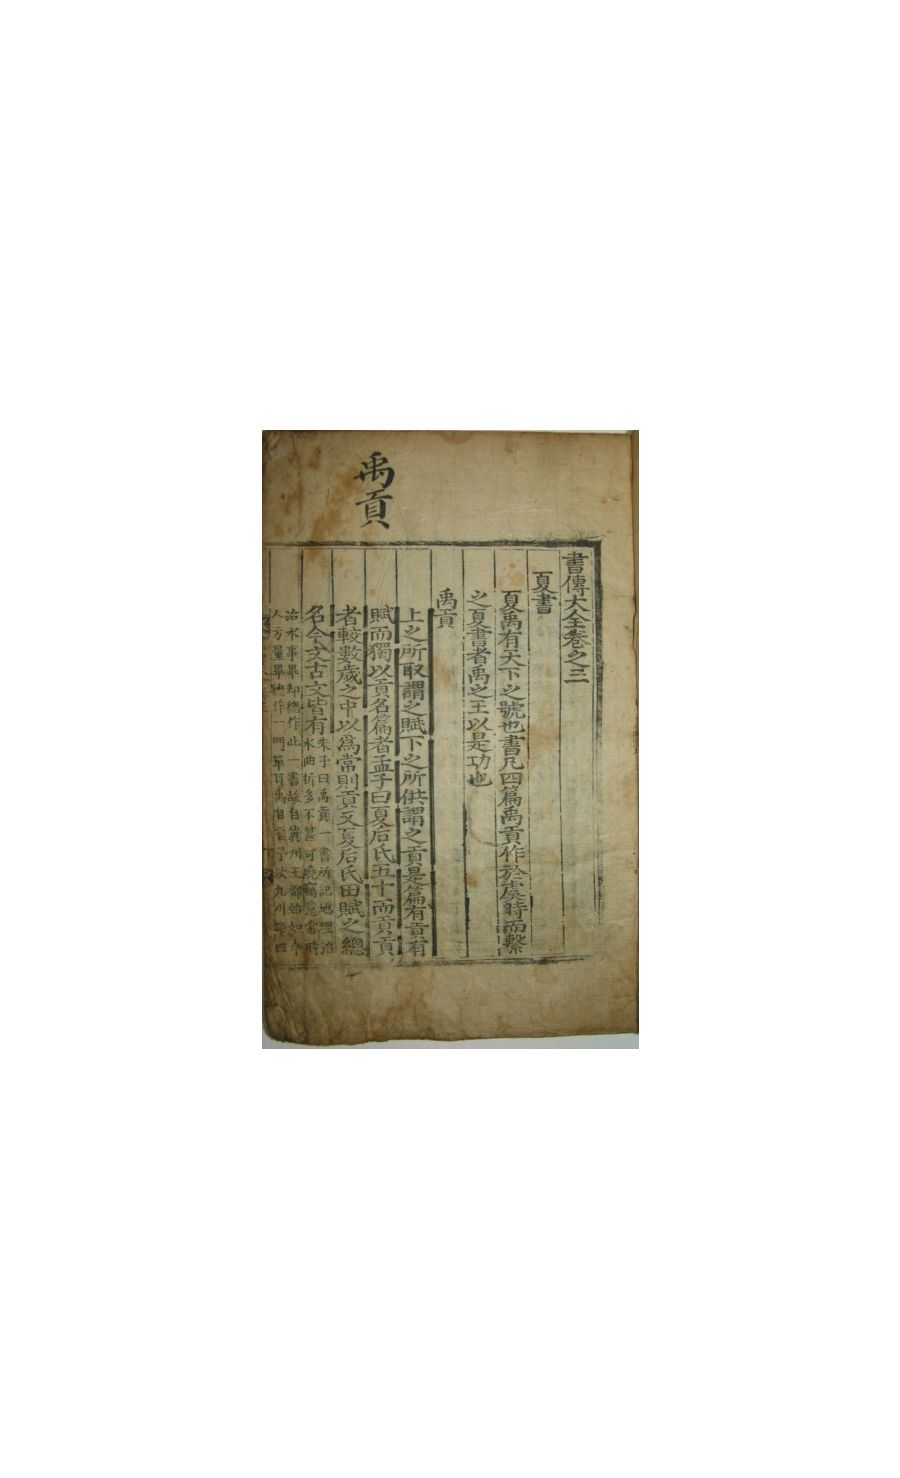 禹貢
書傳大全卷之三
夏書
夏禹有天下之號也書凡四篇禹貢作於虞時而繫
之夏書者禹之王以是功也
禹貢
上之所取謂之賦下之所供謂之貢是篇有貢有
賦而獨以貢名篇者孟子曰夏后氏五十而貢貢
者較數歲之中以爲常則貢又夏后氏田賦之總
名今文古文皆有朱子曰禹貢一書所記地理治
水曲折多不甚可曉竊意當時
治水事畢却總作此一書故自冀州王都始如今
人方量畢總作一門單耳禹自言予決九川距四